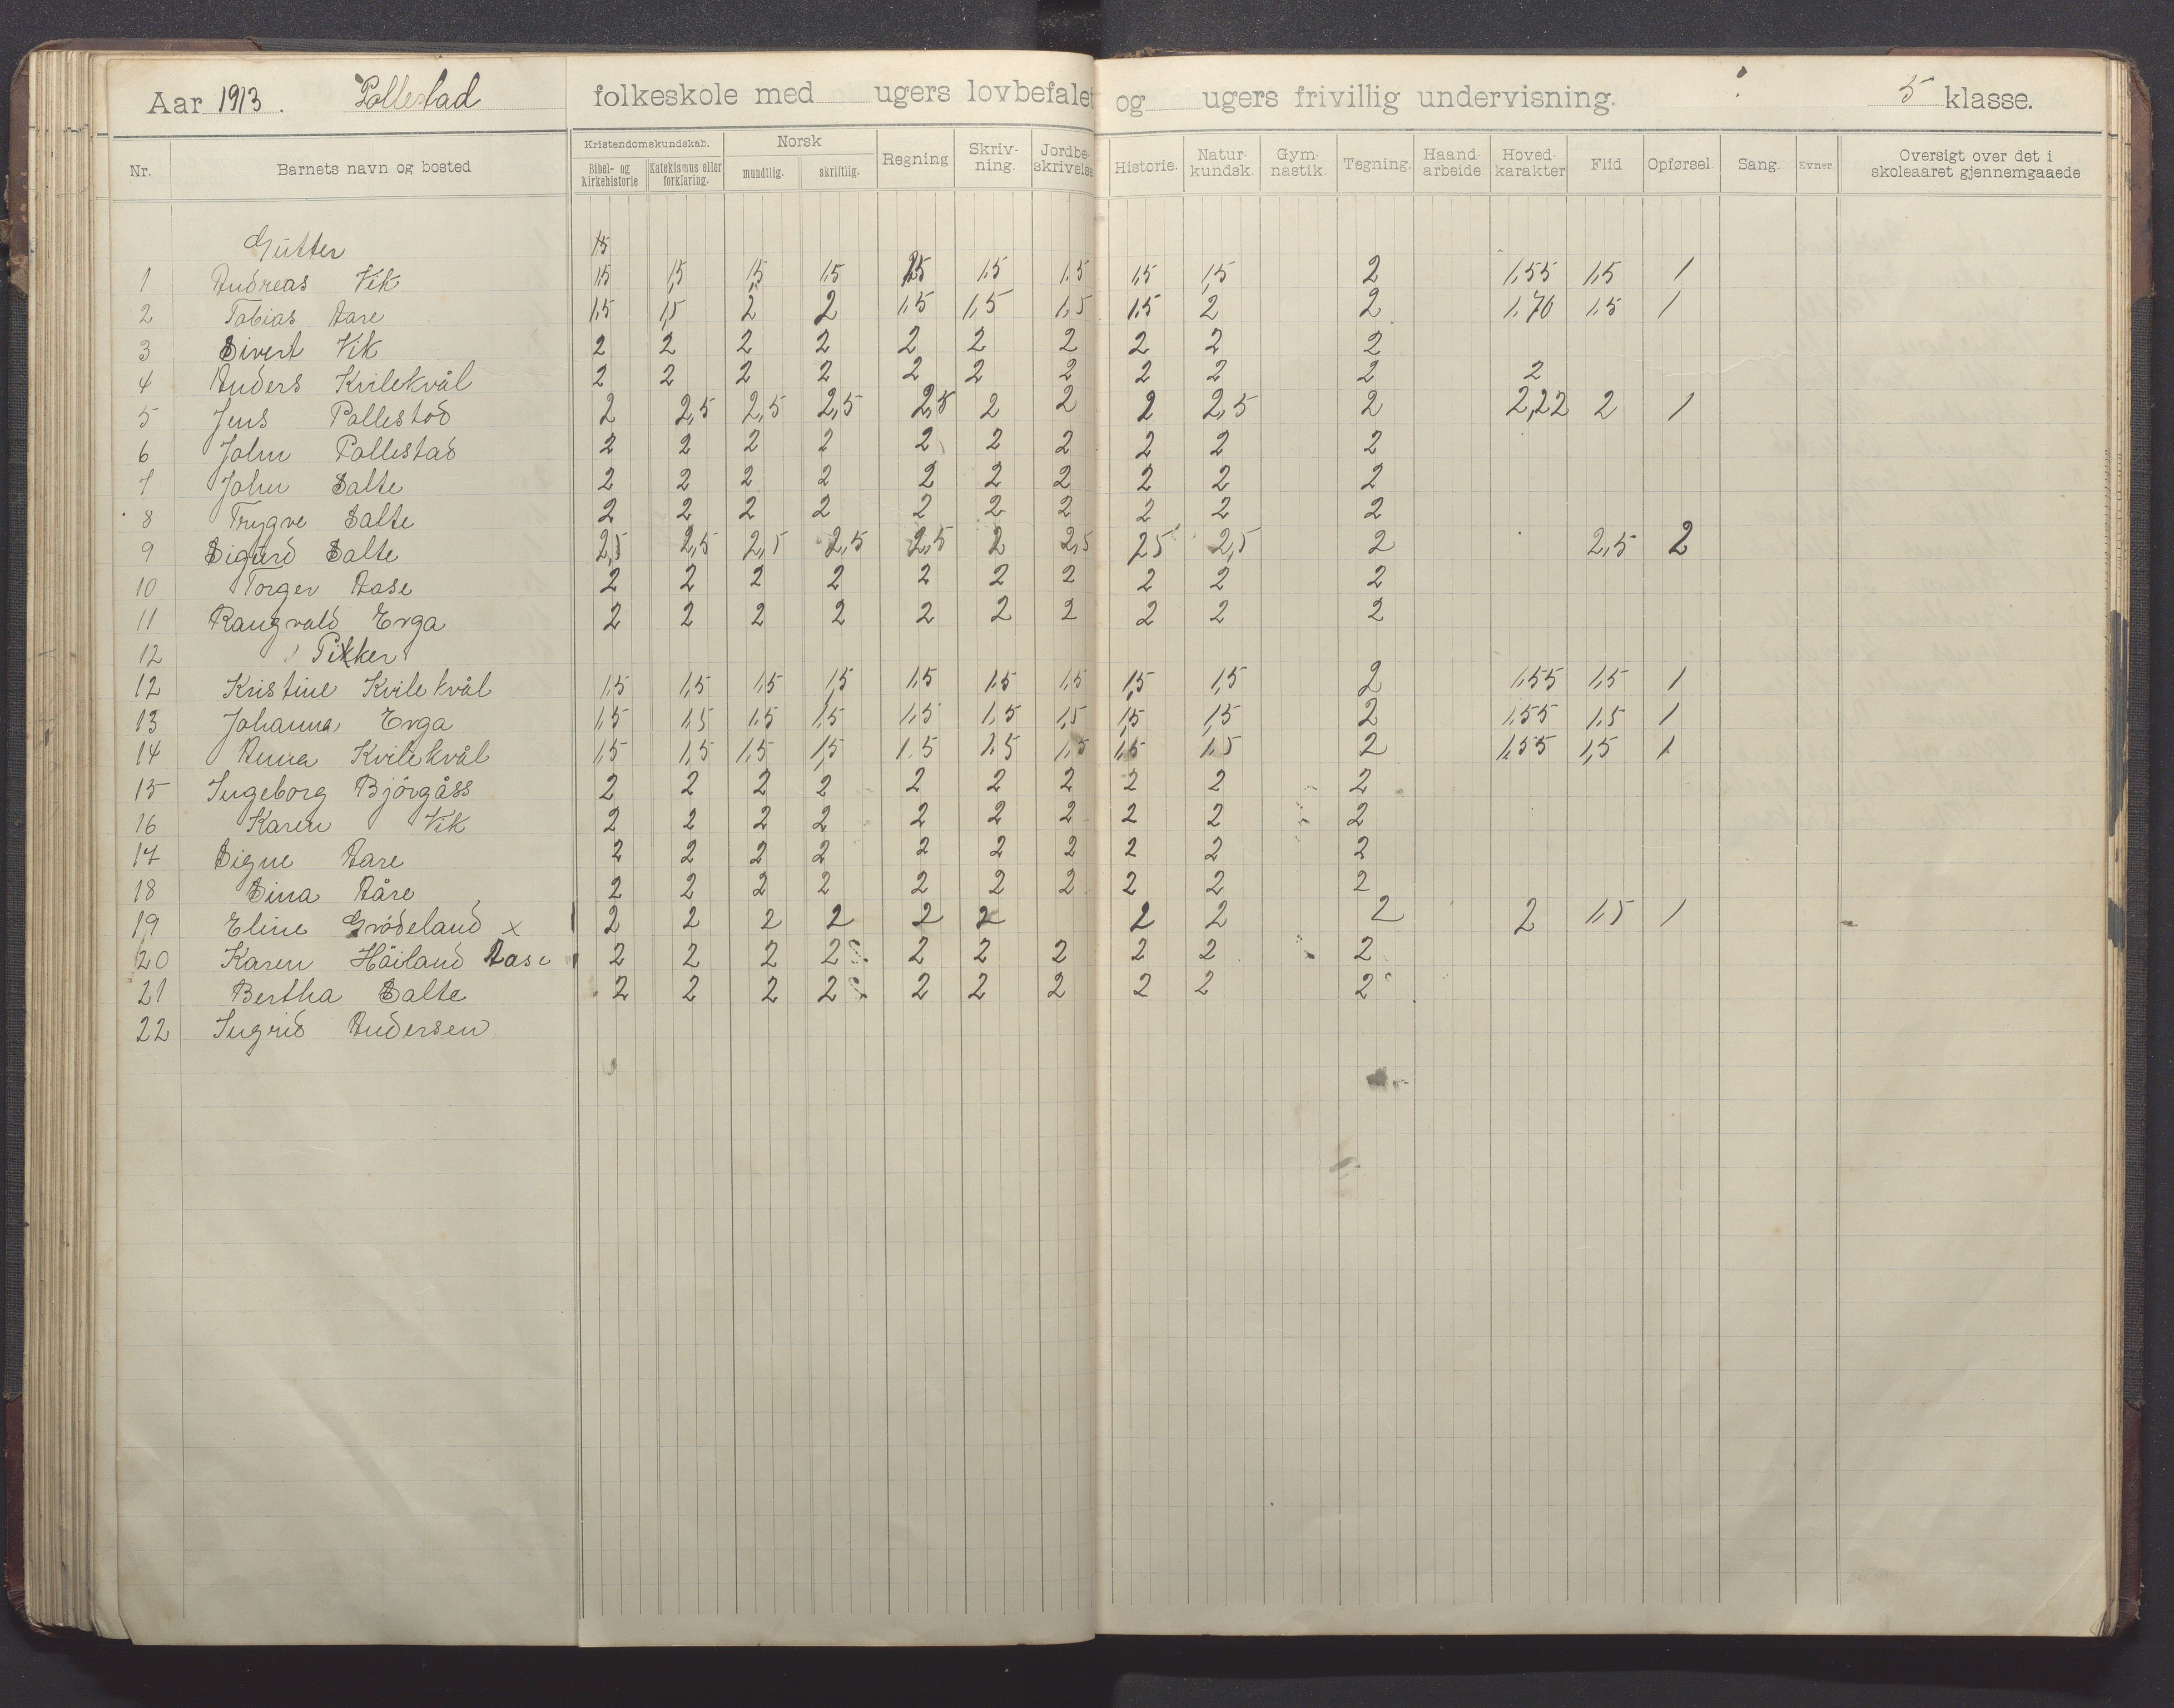 Aar 1913. Pollestad folkeskole med ugers lovbefalet og ugers frivillig undervisning. 5 klasse.
Nr. Barnets navn og bosted Kristendomskundskab. Bibel- og kirkehistorie Katekismus eller forklaring. Norsk mundtlig. skriftlig. Regning Skriv-ning. Jordbe-skrivelse Historie. Natur-kundsk. Gym-nastik. Tegning. Haand-arbeide. Hoved-karakter Flid Opførsel. Sang. Evner Oversigt over det i skoleaaret gjennemgaaede
Gutter 1,5
1 Andreas Vik 1,5 1,5 1,5 1,5 1,5 1,5 1,5 1,5 1,5 2 1,55 1,5 1
2 Tobias Aare 1,5 1,5 2 2 1,5 1,5 1,5 1,5 2 2 1,70 1,5 1
3 Sivert Vik 2 2 2 2 2 2 2 2 2 2
4 Anders Kvilekvål 2 2 2 2 2 2 2 2 2 2 2
5 Jens Pollestad 2 2,5 2,5 2,5 2,5 2 2 2 2,5 2 2,22 2 1
6 John Pollestad 2 2 2 2 2 2 2 2 2 2
7 John Salte 2 2 2 2 2 2 2 2 2 2
8 Trygve Salte 2 2 2 2 2 2 2 2 2 2
9 Sigurd Salte 2,5 2,5 2,5 2,5 2,5 2 2,5 2,5 2,5 2 2,5 2
10 Torger Aase 2 2 2 2 2 2 2 2 2 2
11 Rangvald Erga 2 2 2 2 2 2 2 2 2 2
12 Pikker
12 Kristine Kvilekvål 1,5 1,5 1,5 1,5 1,5 1,5 1,5 1,5 1,5 2 1,55 1,5 1
13 Johanna Erga 1,5 1,5 1,5 1,5 1,5 1,5 1,5 1,5 1,5 2 1,55 1,5 1
14 Anna Kvilekvål 1,5 1,5 1,5 1,5 1,5 1,5 1,5 1,5 1,5 2 1,55 1,5 1
15 Ingeborg Björgåss 2 2 2 2 2 2 2 2 2 2
16 Karen Vik 2 2 2 2 2 2 2 2 2 2
17 Signe Aare 2 2 2 2 2 2 2 2 2 2
18 Sina Aåre 2 2 2 2 2 2 2 2 2 2
19 Eline Grödeland x 2 2 2 2 2 2 2 2 2 2 1,5 1
20 Karen Höiland Aase 2 2 2 2 2 2 2 2 2 2
21 Bertha Salte 2 2 2 2 2 2 2 2 2 2
22 Ingrid Andersen